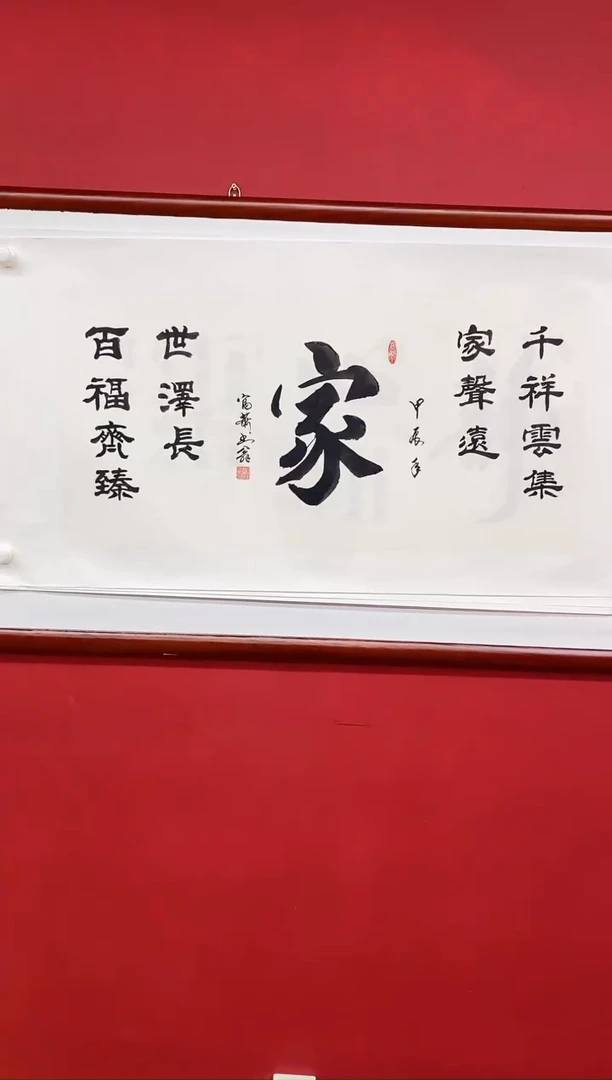 千祥雲集
家聲遠
甲辰年
家
世澤長
百福齊臻